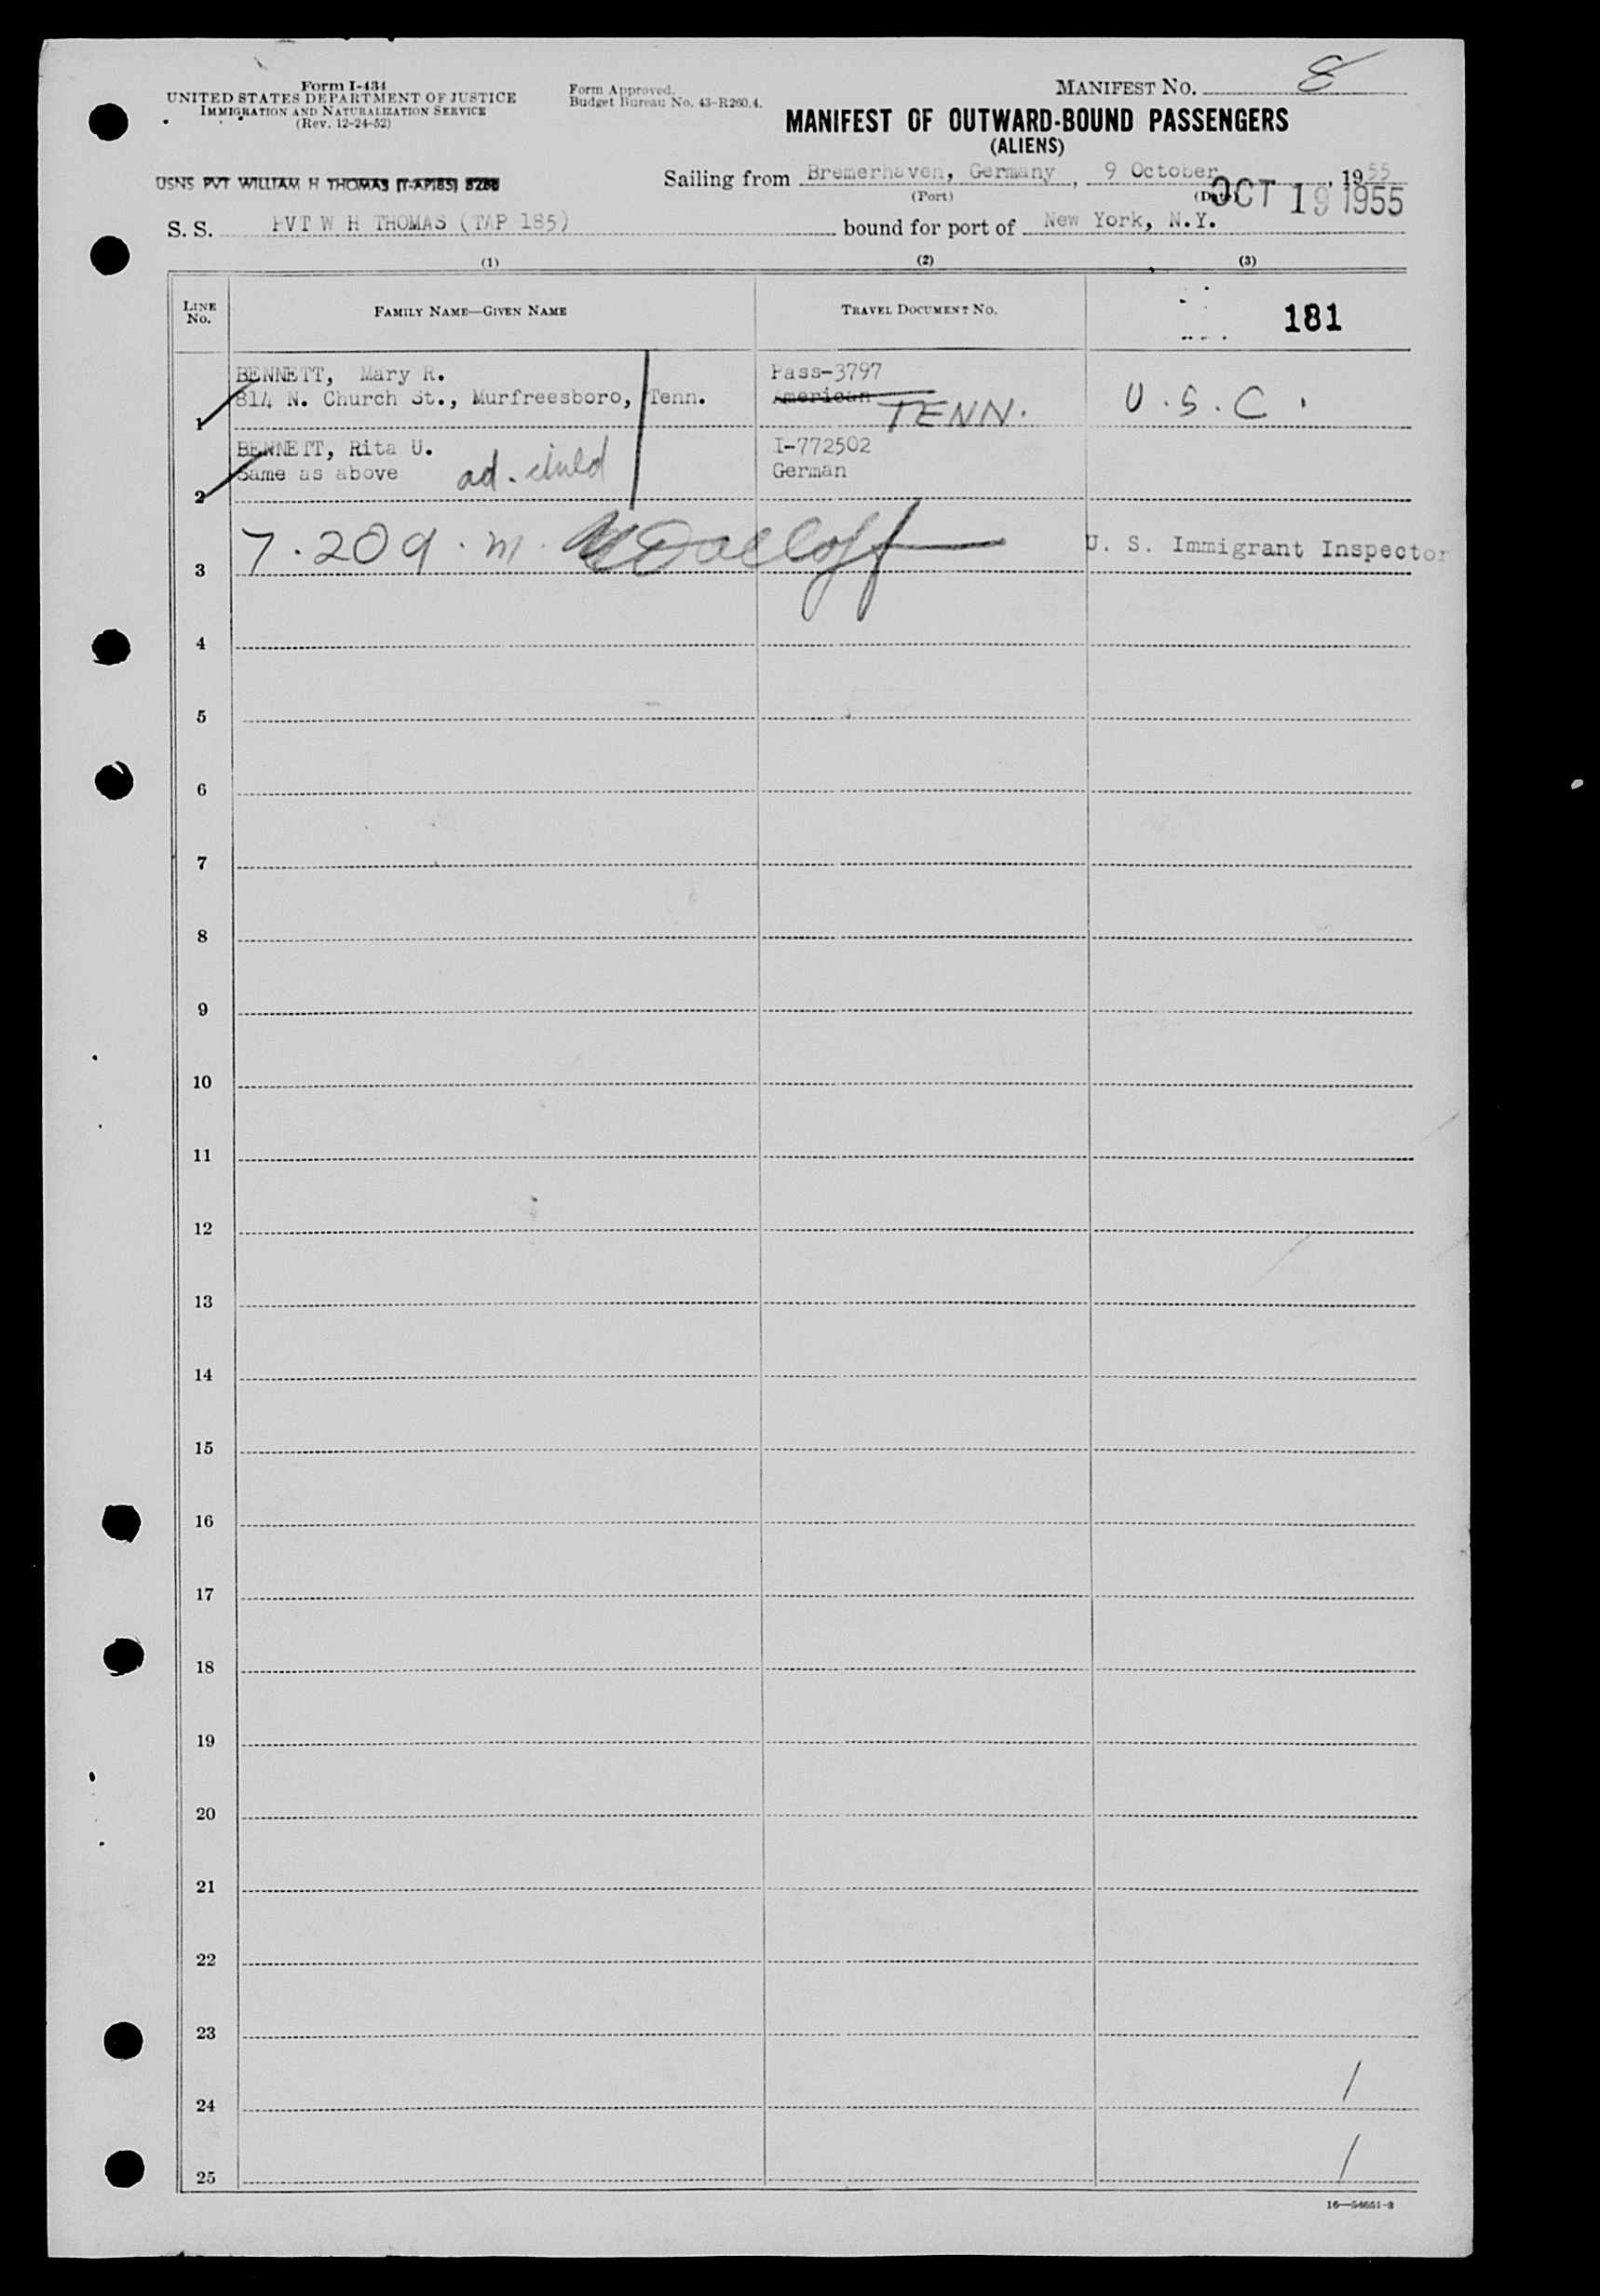 Form I-434
UNITED STATES DEPARTMENT OF JUSTICE
IMMIGRATION AND NATURALIZATION SERVICE
(Rev. 12-24-52)
Form Approved.
Budget Bureau No. 43-R260.4.
MANIFEST NO. 8
MANIFEST OF OUTWARD-BOUND PASSENGERS
(ALIENS)
USNS PVT WILLIAM H THOMAS (T-AP185)
Sailing from Bremerhaven, Germany, 9 October, 1955
(Port) (Date) OCT 19 1955
S. S. PVT W H THOMAS (TAP 185) bound for port of New York, N.Y.
(1) (2) (3)
LINE NO. FAMILY NAME—GIVEN NAME TRAVEL DOCUMENT NO. 181
BENNETT, Mary R. Pass-3797
1 814 N. Church St., Murfreesboro, Tenn. American TENN. U.S.C.
BENNETT, Rita U. I-772502
2 Same as above ad. child German
3 7.209.m. U. S. Immigrant Inspector
4
5
6
7
8
9
10
11
12
13
14
15
16
17
18
19
20
21
22
23
24 /
25 /
16—54651-3